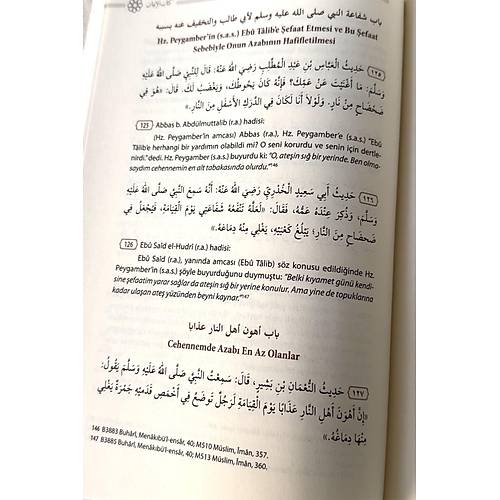 كتاب الإيمان
باب شفاعة النبي صلى الله عليه وسلم لأبي طالب والتخفيف عنه بسببه
Hz. Peygamber'in (s.a.s.) Ebû Tâlib'e Şefaat Etmesi ve Bu Şefaat
Sebebiyle Onun Azabının Hafifletilmesi
١٢٥ حَدِيثُ الْعَبَّاسِ بْنِ عَبْدِ الْمُطَّلِبِ رَضِيَ اللَّهُ عَنْهُ: قَالَ لِلنَّبِيِّ صَلَّى اللَّهُ عَلَيْهِ
وَسَلَّمَ: مَا أَغْنَيْتَ عَنْ عَمِّكَ؟ فَإِنَّهُ كَانَ يَحُوطُكَ، وَيَغْضَبُ لَكَ. قَالَ: «هُوَ فِي
ضَحْضَاحٍ مِنْ نَارٍ. وَلَوْلَا أَنَا لَكَانَ فِي الدَّرَكِ الْأَسْفَلِ مِنَ النَّارِ.»
125 Abbas b. Abdülmuttalib (r.a.) hadisi:
(Hz. Peygamber'in amcası) Abbas (r.a.), Hz. Peygamber'e (s.a.s.) "Ebû
Tâlib'e herhangi bir yardımın olabildi mi? O seni korurdu ve senin için dertle-
nirdi." dedi. Hz. Peygamber (s.a.s.) buyurdu ki: "O, ateşin sığ bir yerinde. Ben olma-
saydım cehennemin en alt tabakasında olurdu."146
١٢٦ حَدِيثُ أَبِي سَعِيدٍ الْخُدْرِيِّ رَضِيَ اللَّهُ عَنْهُ: أَنَّهُ سَمِعَ النَّبِيَّ صَلَّى اللَّهُ عَلَيْهِ
وَسَلَّمَ، وَذُكِرَ عِنْدَهُ عَمُّهُ، فَقَالَ: «لَعَلَّهُ تَنْفَعُهُ شَفَاعَتِي يَوْمَ الْقِيَامَةِ، فَيُجْعَلُ فِي
ضَحْضَاحٍ مِنَ النَّارِ؛ يَبْلُغُ كَعْبَيْهِ، يَغْلِي مِنْهُ دِمَاغُهُ.»
126 Ebû Saîd el-Hudrî (r.a.) hadisi:
Ebû Saîd (r.a.), yanında amcası (Ebû Tâlib) söz konusu edildiğinde Hz.
Peygamber'in (s.a.s.) şöyle buyurduğunu duymuştu: "Belki kıyamet günü kendi-
sine şefaatim yarar sağlar da ateşin sığ bir yerine konulur. Ama yine de topuklarına
kadar ulaşan ateş yüzünden beyni kaynar."147
باب أهون أهل النار عذابا
Cehennemde Azabı En Az Olanlar
١٢٧ حَدِيثُ النُّعْمَانِ بْنِ بَشِيرٍ، قَالَ: سَمِعْتُ النَّبِيَّ صَلَّى اللَّهُ عَلَيْهِ وَسَلَّمَ يَقُولُ:
«إِنَّ أَهْوَنَ أَهْلِ النَّارِ عَذَابًا يَوْمَ الْقِيَامَةِ لَرَجُلٌ تُوضَعُ فِي أَخْمَصِ قَدَمَيْهِ جَمْرَةٌ يَغْلِي
مِنْهَا دِمَاغُهُ.»
146 B3883 Buhârî, Menâkıbü'l-ensâr, 40; M510 Müslim, Îmân, 357.
147 B3885 Buhârî, Menâkıbü'l-ensâr, 40; M513 Müslim, Îmân, 360.